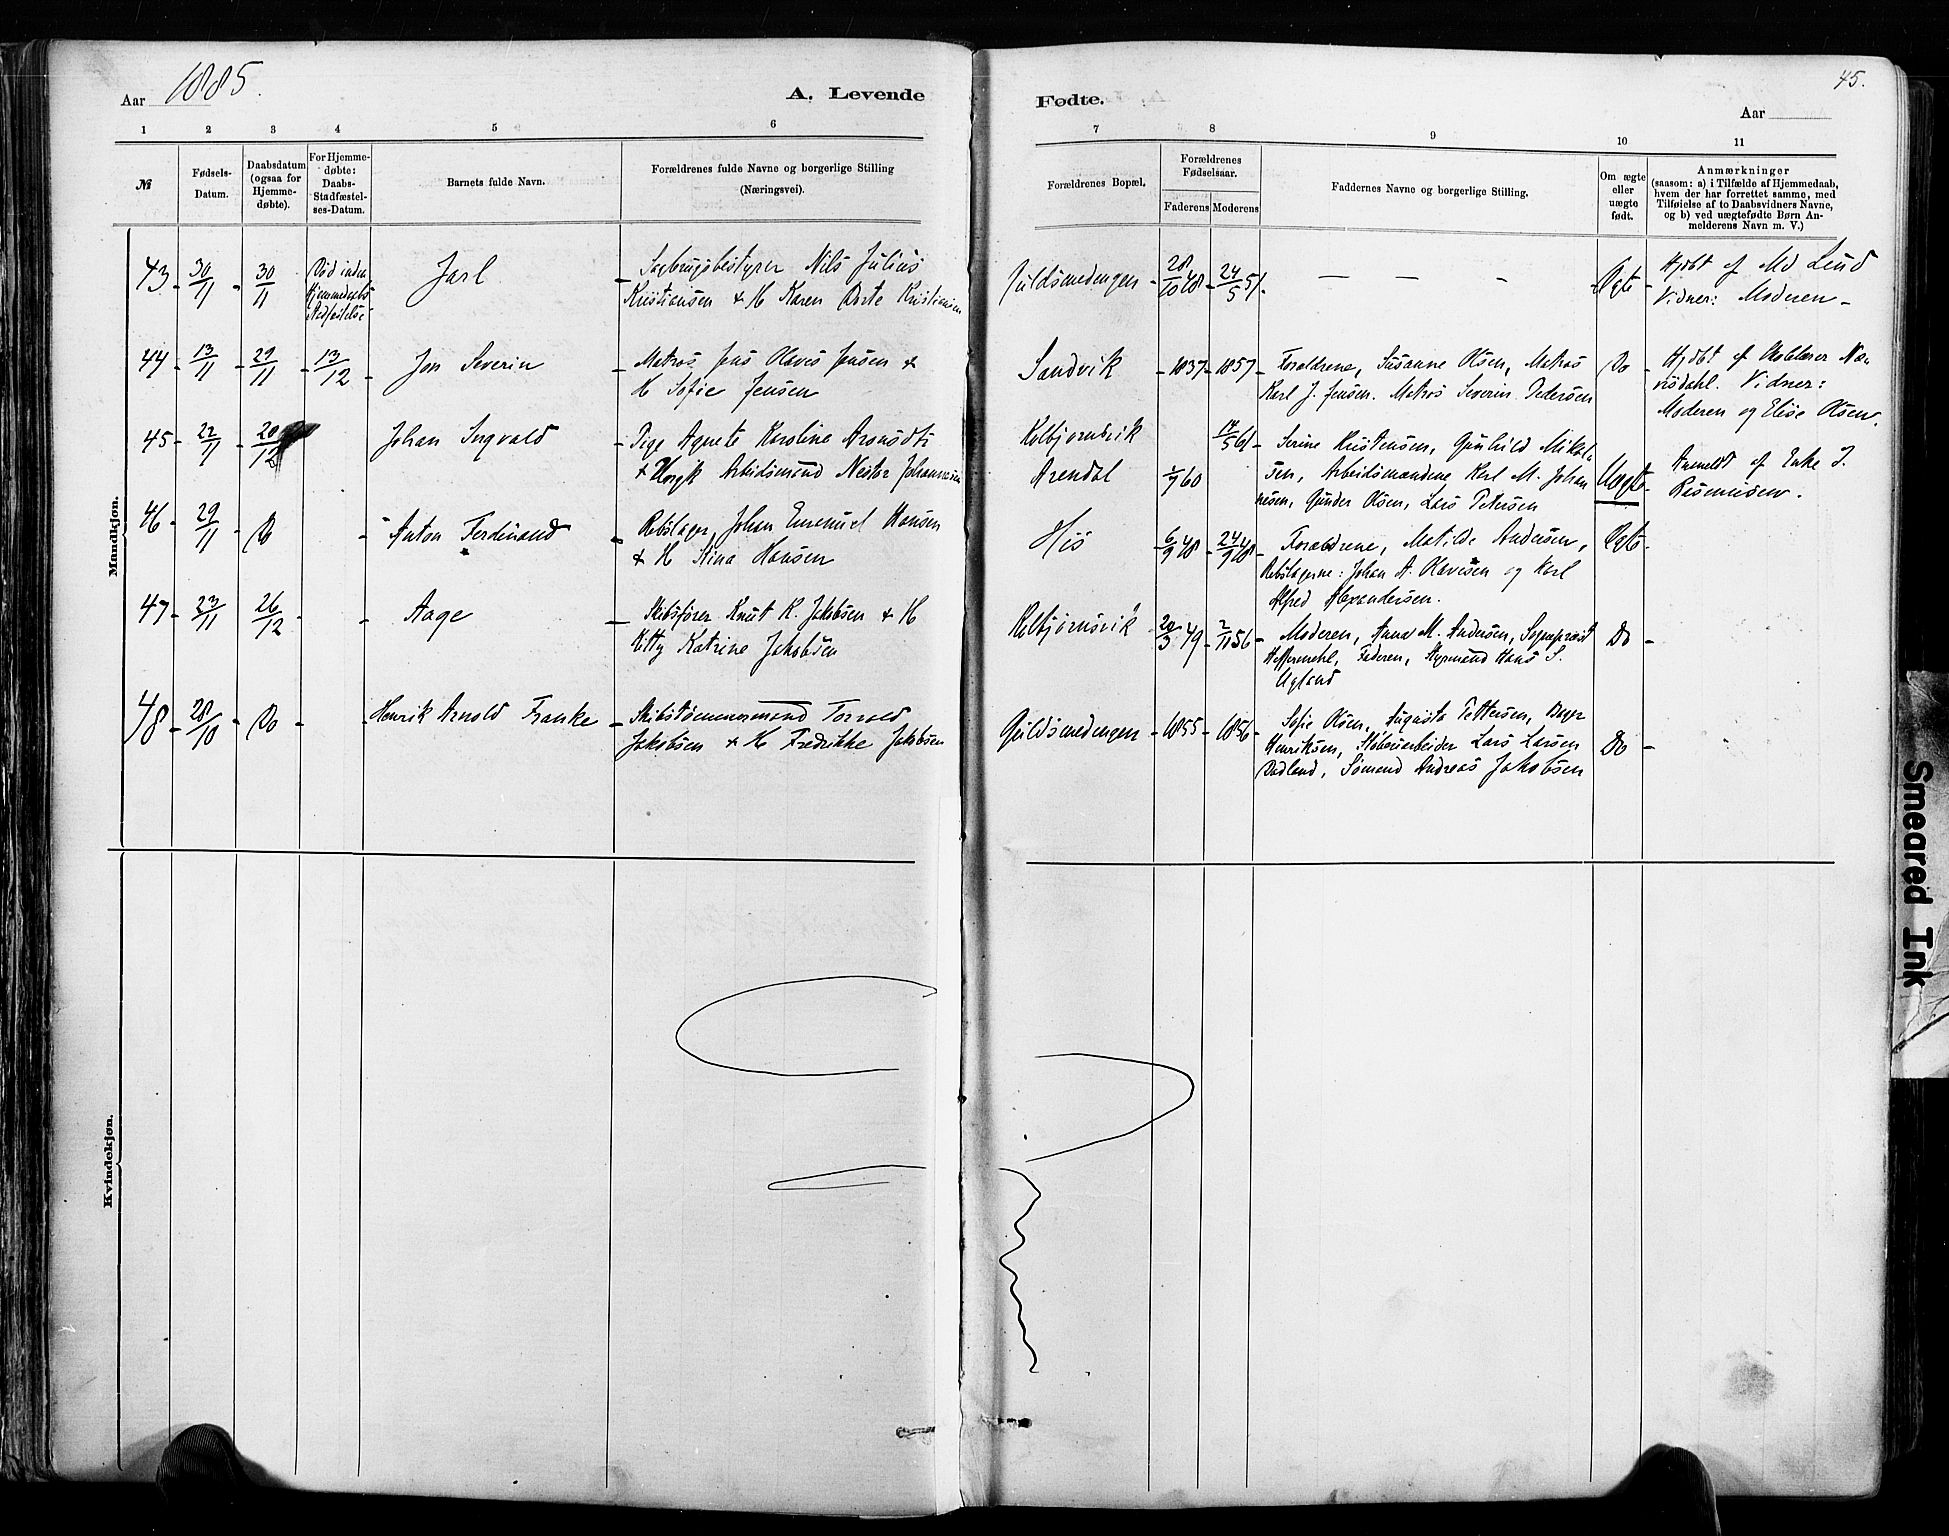 Aar 1885.
A. Levende
Fødte.
45.
Aar
1 2 3 4 5 6
7 8 9 10 11
№
Fødsels-
Datum.
Daabsdatum
(ogsaa for
Hjemme-
døbte).
For Hjemme-
døbte:
Daabs-
Stadfæstel-
ses-Datum.
Barnets fulde Navn.
Forældrenes fulde Navne og borgerlige Stilling
(Næringsvei).
Forældrenes Bopæl.
Forældrenes
Fødselsaar.
Faderens Moderens
Faddernes Navne og borgerlige Stilling.
Om ægte
eller
uægte
født.
Anmærkninger
(saasom: a) i Tilfælde af Hjemmedaab,
hvem der har forrettet samme, med
Tilføielse af to Daabsvidners Navne,
og b) ved uægtefødte Børn An-
melderens Navn m. V.)
Mandkjøn.
43 30/11 30/11
Død inden
Hjemmedaabs
Stadfæstelse
Jarl
Sagbrugsbestyrer Nils Julius
Kristiansen & H Karen Dorte Kristiansen
Guldsmedengen 28/10 48 24/5 51.
Ægte
Hjdbt af Md Lund
Vidner: Moderen
44 13/11 29/11 13/12
Jon Severin
Matros Jens Olaves Jensen &
H Sofie Jensen
Sandvik 1837 1857
Forældrene, Susanne Olsen, Matros
Karl J. Jensen. Matros Severin Pedersen
Do
Hjdbt af
Vidner:
Moderen og Elise Olsen.
45 22/11 20/12
Johan Ingvald
Pige Agnete Karoline Aronsdtr
& Ungk Arbeidsmand Nestor Johannesen
Kolbjørnsvik
Arendal 1/9 60 17/5 61
Serine Kristensen, Gunhild Mikal-
sen, Arbeidsmændene Karl M. Johan
nesen, Gunder Olsen, Lars Pettersen
Uægte
Anmeldt af Enke J.
Rasmussen.
46 29/11 Do
Anton Ferdinand
Rebslager Johan Emanuel Hansen
& H Stina Hansen
His 6/9 48 24/9 48
Forældrene, Matilde Andersen,
Rebslagerne: Johan A. Olavesen og Karl
Alfred Alexandersen.
Ægte
47 23/11 26/12
Aage
Skibsfører Knut K. Jakobsen & H
Kitty Katrine Jakobsen
Kolbjørnsvik 20/3 49 2/11 56
Moderen, Anna M. Andersen, Sogneprest
Heffermehl, Faderen, Styrmand Hans S.
Ugland
Do
48 28/10 Do
Henrik Arnold Franke
Skibstømmermand Torvald
Jakobsen & H Fredrikke Jakobsen
Guldsmedengen 1855 1856
Sofie Olsen, Augusta Pettersen,
Henriksen, Støberiarbeider Lars Larsen
Dadland, Sømand Andreas Jakobsen
Do
Kvindekjøn.
Smeared Ink